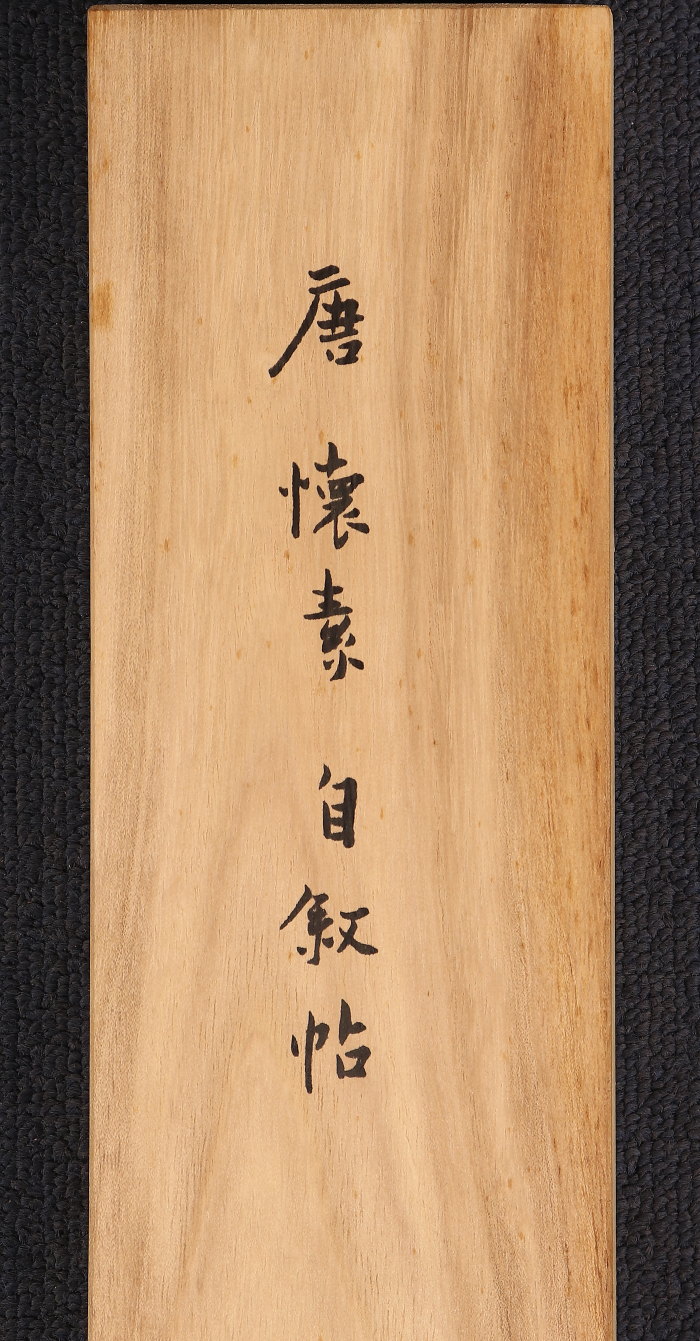 唐 懷素 自叙帖